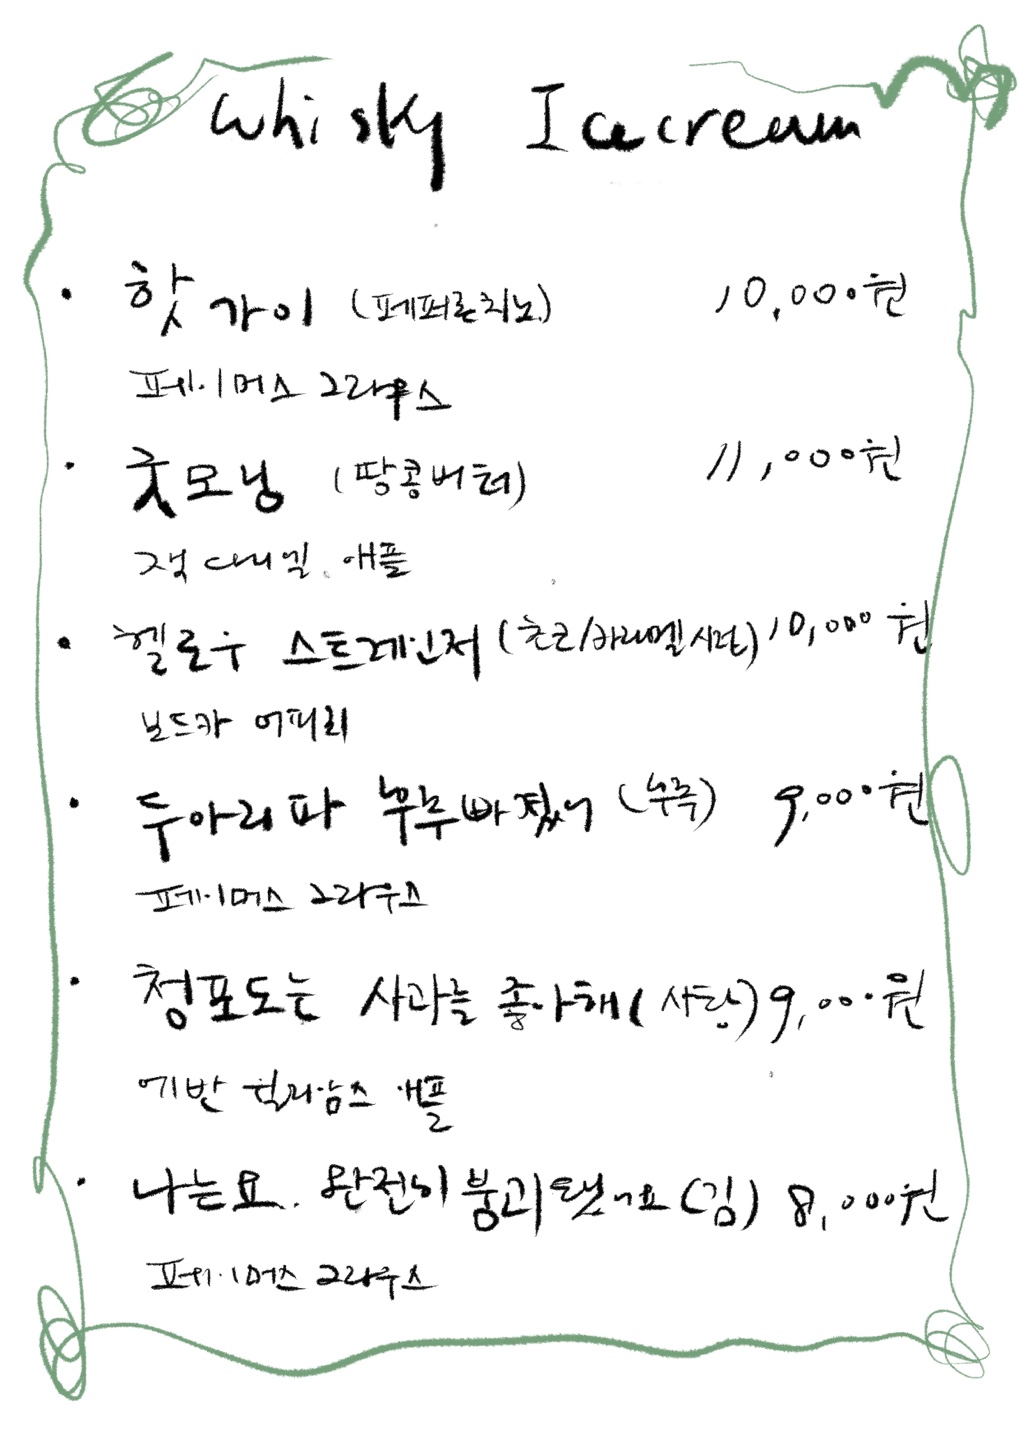 Whisky Icecream
• 핫 가이 (페퍼론치노) 10,000원
페이머스 그라우스
• 굿모닝 (땅콩버터) 11,000원
잭 다니엘. 애플
• 헬로우 스트레인저 (초코/카라멜 시럽) 10,000원
보드카 어피리
• 두아리파 부부빠졌어 (누룩) 9,000원
페이머스 그라우스
• 청포도는 사과를 좋아해 (사탕) 9,000원
에반 윌리암스 애플
• 나는요. 완전히 붕괴됐어요 (김) 8,000원
페이머스 그라우스